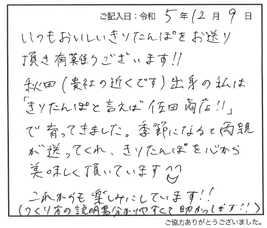 ご記入日：令和 5年 12月 9日
いつもおいしいきりたんぽをお送り
頂き有難うございます!!
秋田(貴社の近くです)出身の私は
「きりたんぽと言えば佐田商店!!」
で育ってきました。季節になると両親
が送ってくれ、きりたんぽを心から
美味しく頂いています
これからも楽しみにしています!!
(つくり方の説明書分かりやすくて助かってます!!)
ご協力ありがとうございました。